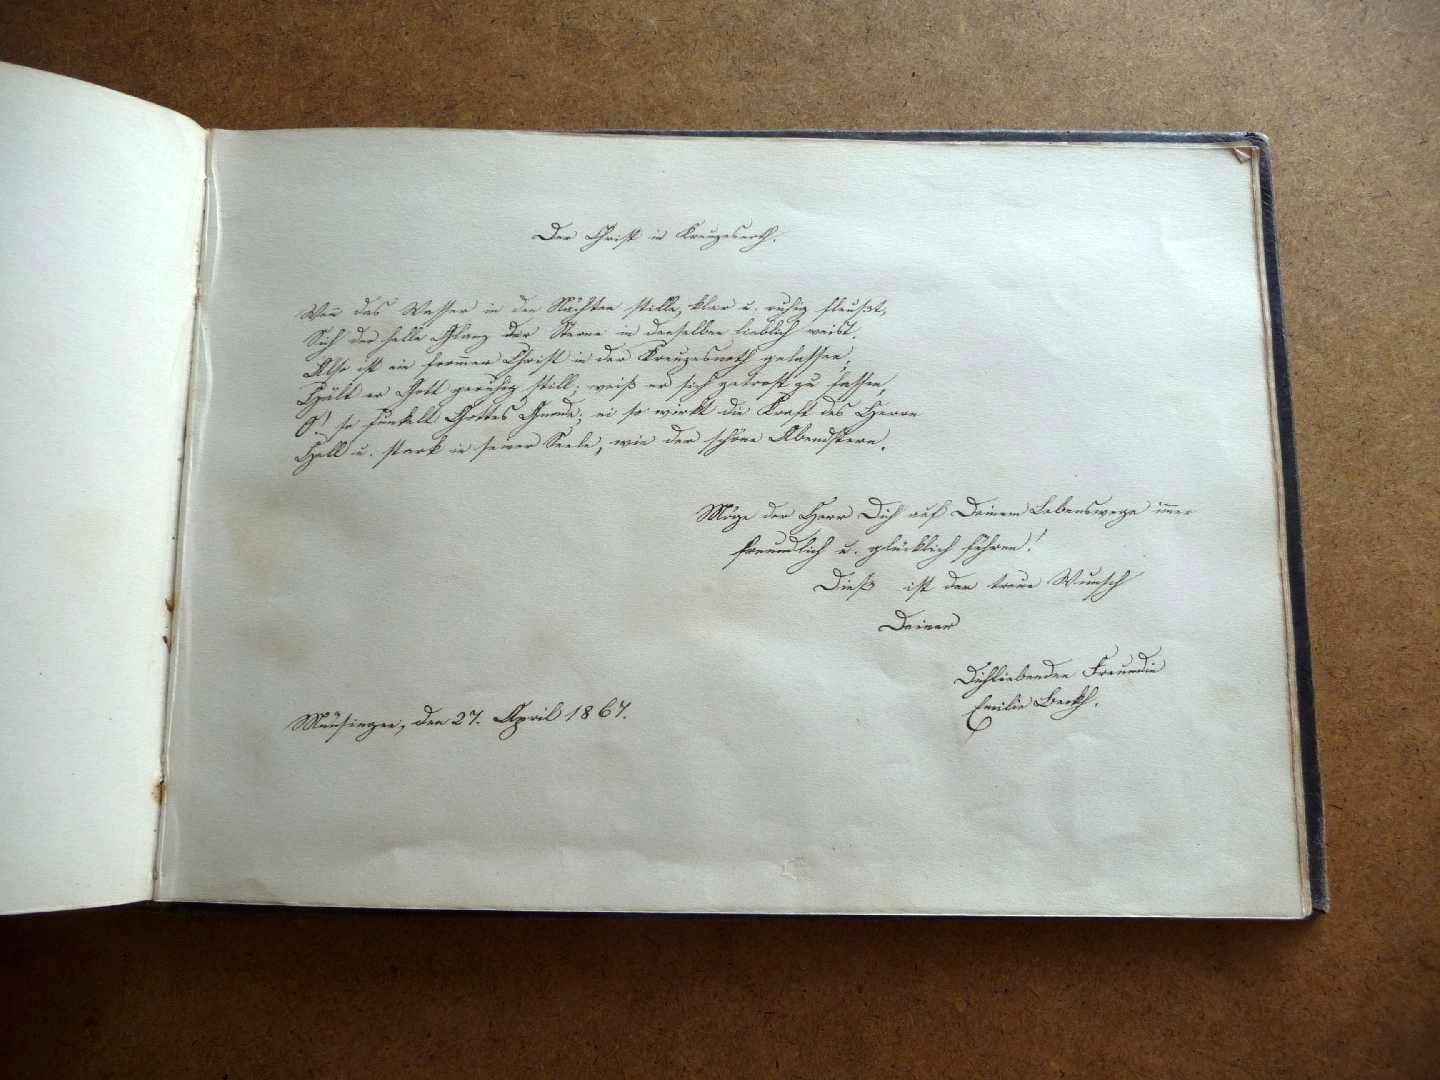 Der Christ in Kreuzesnoth.
Wen̄ das Wasser in den Nächten stille, klar u. ruhig fleußt,
Sich der helle Glanz der Sterne in denselben lieblich weist.
Also ist ein from̄er Christ in der Kreuzesnoth gelassen,
Hält er Gott geruhig still; weiß er sich getrost zu fassen,
O! so funkelt Gottes Gnade; ei so wirkt die Kraft des Herrn
Hell u. stark in seiner Seele, wie der schöne Abendstern.
Möge der Herr Dich auf Deinem Lebenswege im̄er
freundlich u. glücklich führen!
Dieß ist der treue Wunsch
Deiner
Dichliebenden Freundin
Emilie
Münsingen, den 27. April 1867.